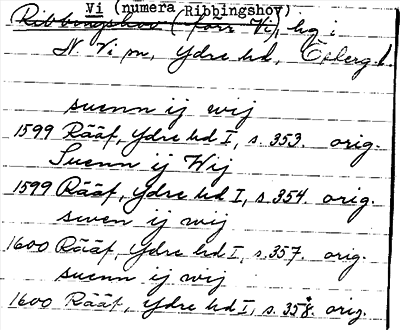 Vi (numera Ribbingshov)
Ribbingshov (förr Vi), hg i
N. Vi sn, Ydre hd, Österg. l.
suenn ij wij
1599 Rääf, Ydre hd I, s. 353. orig.
Suenn ij Wij
1599 Rääf, Ydre hd I, s. 354. orig.
swen ij wij
1600 Rääf, Ydre hd I, s. 357. orig.
suenn ij wij
1600 Rääf, Ydre hd I, s. 358. orig.